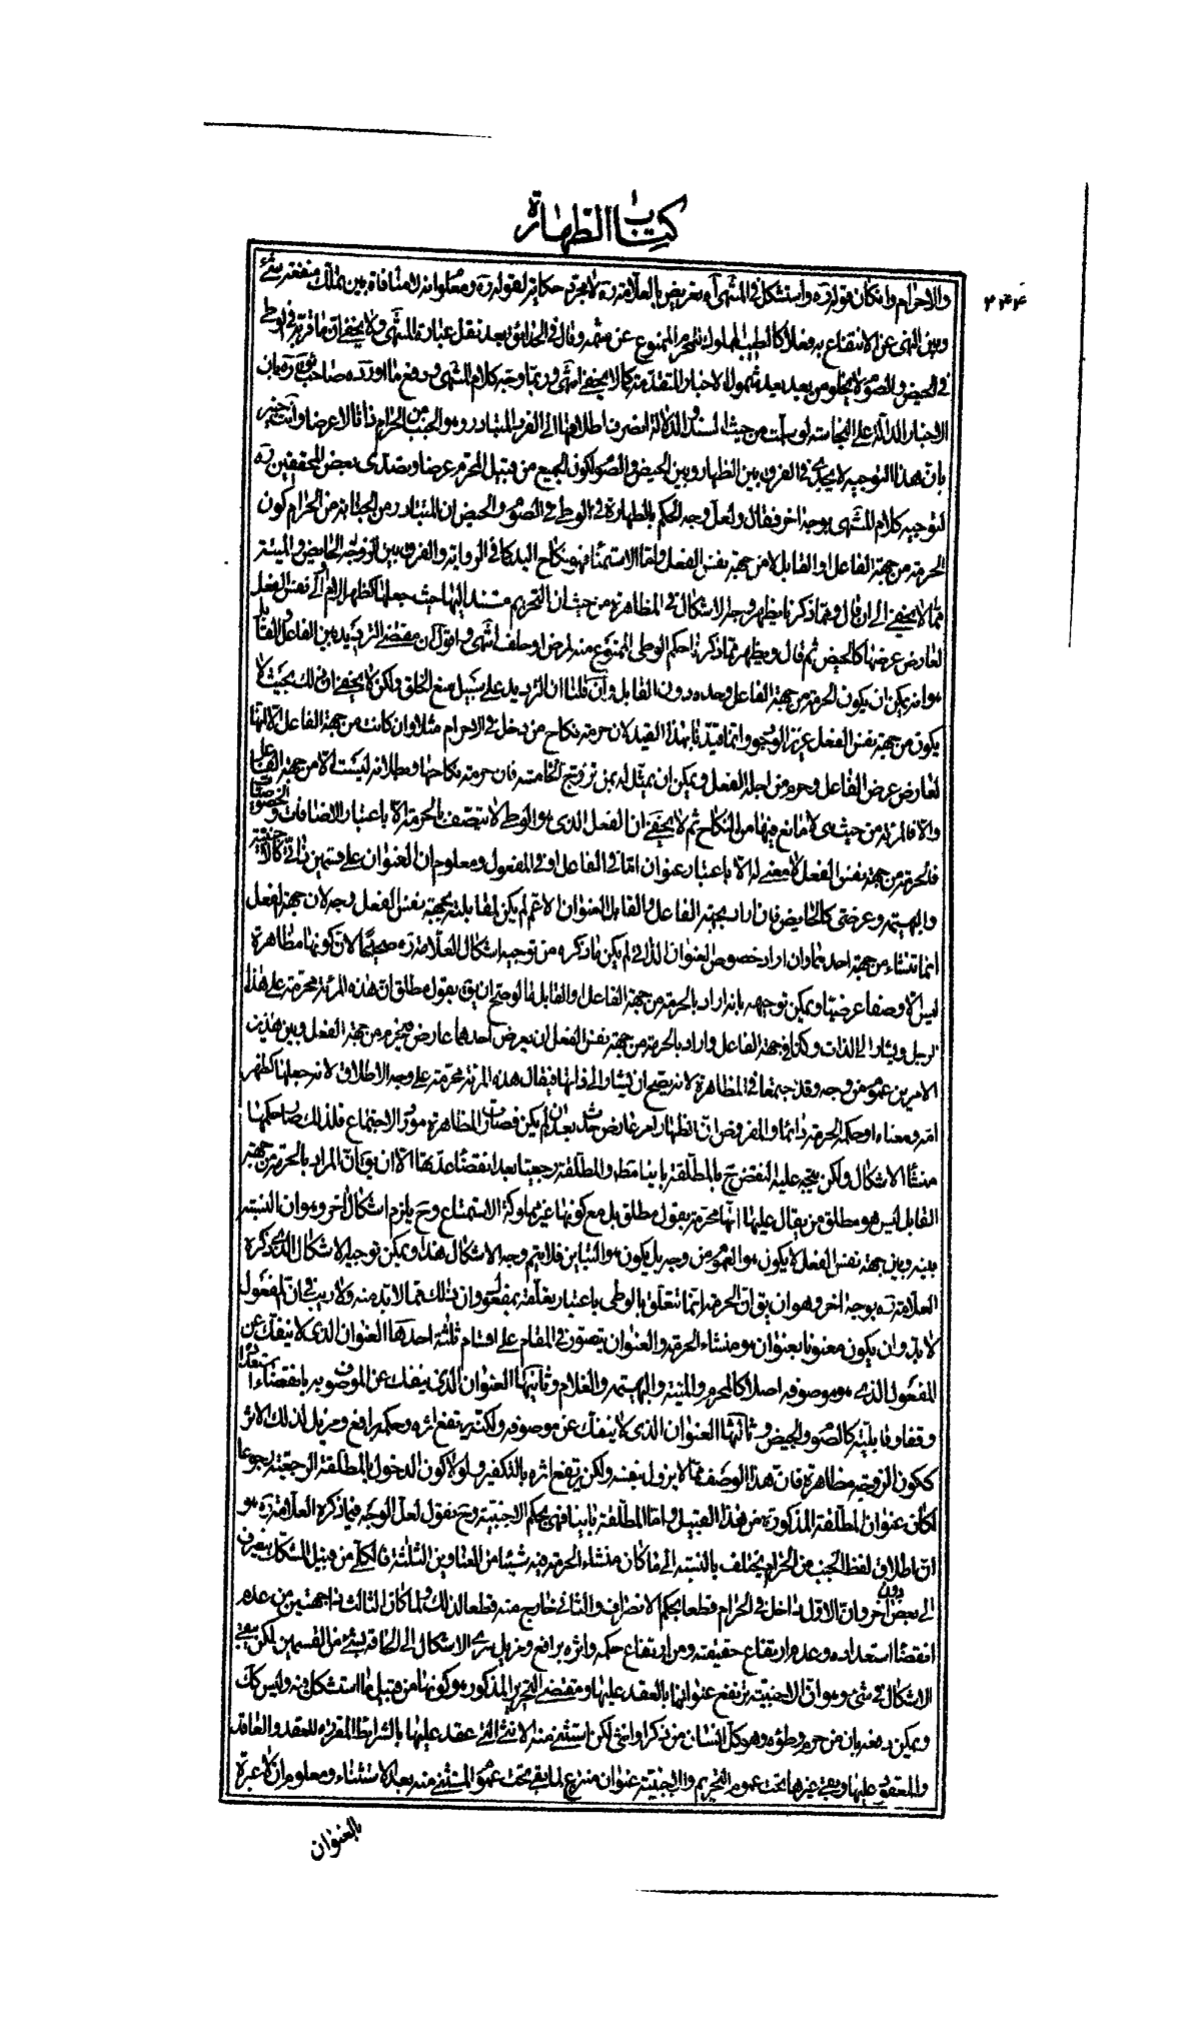 كتاب الطهارة
۴۳۴
والاحرام وان كان قوله ره واستشكل في المنتهى اه تعريض بالعلامة ره لا مجرد حكاية لقوله ره ومعلوم انه لا منافاة بين تملك منفعة شيء
وبين النهي عن الانتفاع به فعلا كالطيب المملوك للمحرم الممنوع عن شمه وقال في الحدائق بعد نقل عبارة المنتهى ولا يخفى ان ما قربه في الوطي
في الحيض والصوم لا يخلو من بعد بعيد لشمول الاخبار المتقدمة كما لا يخفى انتهى وربما وجه كلام المنتهى ودفع ما اورده صاحب ئق ره بان
الاخبار الدالة على النجاسة لو سلمت من حيث السند والدلالة انصرف اطلاقها الى الفرد المتبادر وهو الجنب من الحرام ذاتا لا عرضا وانت خبير
بان هذا التوجيه لا يجدي في الفرق بين الظهار وبين الحيض والصوم لكون الجميع من قبيل المحرم عرضا وتصدى بعض المحققين ره
لتوجيه كلام المنتهى بوجه اخر فقال ولعل وجه الحكم بالطهارة في الوطي في الصوم والحيض ان المتبادر من الجنابة من الحرام كون
الحرمة من جهة الفاعل او القابل لا من جهة نفس الفعل واما الاستمناء فهو نكاح اليد كما في الرواية والفرق بين الزوجة الحايض والميتة
مما لا يخفى الى ان قال ومما ذكرنا يظهر وجه الاشكال في المظاهرة من حيث ان التحريم مستند اليها حيث جعلها كظهر امه والى نفس الفعل
لعارض عرضها كالحيض ثم قال ويظهر مما ذكرنا حكم الوطي الممنوع منه لمرض او حلف انتهى واقول ان مقتضى الترديد بين الفاعل والقابل
هو انه يمكن ان يكون الحرمة من جهة الفاعل وحده دون القابل وان قلنا ان الترديد على سبيل منع الخلو ولكن لا يخفى ان ذلك بحيث لا
يكون من جهة نفس الفعل عزيز الوجود وانما قيدنا بهذا القيد لان حرمة نكاح من دخل في الاحرام مثلا وان كانت من جهة الفاعل الا انها
لعارض عرض الفاعل وحرم من اجله الفعل ويمكن ان يمثل له بمن تزوج الخامسة فان حرمة نكاحها وبطلانه ليست الا من جهة الفاعل
والا فالمرئة من حيث هي لا مانع فيها من النكاح ثم لا يخفى ان الفعل الذي هو الوطي لا يتصف بالحرمة الا باعتبار الاضافات والخصوصيات
فالحرمة من جهة نفس الفعل لا معنى له الا باعتبار عنوان اما في الفاعل او في المفعول ومعلوم ان العنوان على قسمين ذاتي كالاجنبية
والبهيمة وعرضي كالحايض فان اراد بجهة الفاعل والقابل العنوان الاعم لم يكن لمقابلته بجهة نفس الفعل وجه لان جهة الفعل
انما تنشاء من جهة احدهما وان اراد خصوص العنوان الذاتي لم يكن ما ذكره من توجيه اشكال العلامة ره صحيحا لان كونها مظاهرة
ليس الا وصفا عرضيا ويمكن توجيهه بانه اراد بالحرمة من جهة الفاعل والقابل ما لو صح ان يق بقول مطلق ان هذه المرئة محرمة على هذا
الرجل ويشار الى الذات وكذا في جهة الفاعل واراد بالحرمة من جهة نفس الفعل ان يعرض احدهما عارض فيحرم من جهة الفعل وبين هذين
الامرين عموم من وجه وقد اجتمعا في المظاهرة لانه يصح ان يشار الى ذاتها فيقال هذه المرئة محرمة على وجه الاطلاق لانه جعلها كظهر
امه ومعناه او حكمه الحرمة دائما والمفروض ان الظهار امر عارض حدث بعد ان لم يكن فصارت المظاهرة مورد الاجتماع فلذلك صار حكمها
منشأ الاشكال ولكن يتجه عليه النقض ح بالمطلقة باينا مط والمطلقة رجعيا بعد انقضاء عدتها الا ان يق ان المراد بالحرمة من جهة
القابل ليس هو مطلق من يقال عليها انها محرمة بقول مطلق بل مع كونها غير مملوكة الاستمتاع وح يلزم اشكال اخر وهو ان النسبة
بينه وبين جهة نفس الفعل لا يكون هو العموم من وجه بل يكون هو التباين فلا يتم وجه الاشكال هذا ويمكن توجيه الاشكال الذي ذكره
العلامة ره بوجه اخر وهو ان يق ان الحرمة انما تتعلق بالوطي باعتبار تعلقه بمفعول وان ذلك مما لا بد منه ولا ريب في ان المفعول
لا بد وان يكون معنونا بعنوان هو منشاء الحرمة والعنوان يتصور في المقام على اقسام ثلثة احدها العنوان الذي لا ينفك عن
المفعول الذي هو موصوفه اصلا كالمحرم والميتة والبهيمة والغلام وثانيها العنوان الذي ينفك عن الموصوف به بانقضاء استعداد
وقفا وقابليته كالصوم والحيض وثالثها العنوان الذي لا ينفك عن موصوفه ولكنه يرتفع اثره وحكمه برافع ومزيل لذلك الاثر
ككون الزوجة مظاهرة فان هذا الوصف مما لا يزول بنفسه ولكن يرتفع اثره بالتكفير ولولا كون الدخول بالمطلقة الرجعية رجوعا
لكان عنوان المطلقة المذكورة من هذا القبيل واما المطلقة باينا فهي بحكم الاجنبية وح نقول لعل الوجه فيما ذكره العلامة ره هو
ان اطلاق لفظ الجنب من الحرام يختلف بالنسبة الى ما كان منشاء الحرمة فيه شيئا من العناوين الثلثة فالكلي من قبيل المشكك ينصرف
الى بعض دون اخر وان الاول داخل في الحرام قطعا بحكم الانصراف والثاني خارج منه قطعا لذلك ولما كان الثالث ذا جهتين من عدم
انقضاء استعداده وعدم ارتفاع حقيقته ومن ارتفاع حكمه واثره برافع ومزيل سرى الاشكال الى الحاقه بشيء من القسمين لكن يبقى
الاشكال في شيء وهو ان الاجنبية يرتفع عنوانها بالعقد عليها ومقتضى التحرير المذكور هو كونها من قبيل ما استشكل فيه وليس كك
ويمكن دفعه بان من حرم وطؤه وهو كل انسان من ذكر او انثى لكن استثنى منه الانثى التي عقد عليها بالشرايط المقررة للعقد والعاقد
والمعقود عليها وبقي غيرها تحت عموم التحريم والاجنبية عنوان منتزع لما بقي تحت عموم المستثنى منه بعد الاستثناء ومعلوم ان لا عبرة
بالعنوان